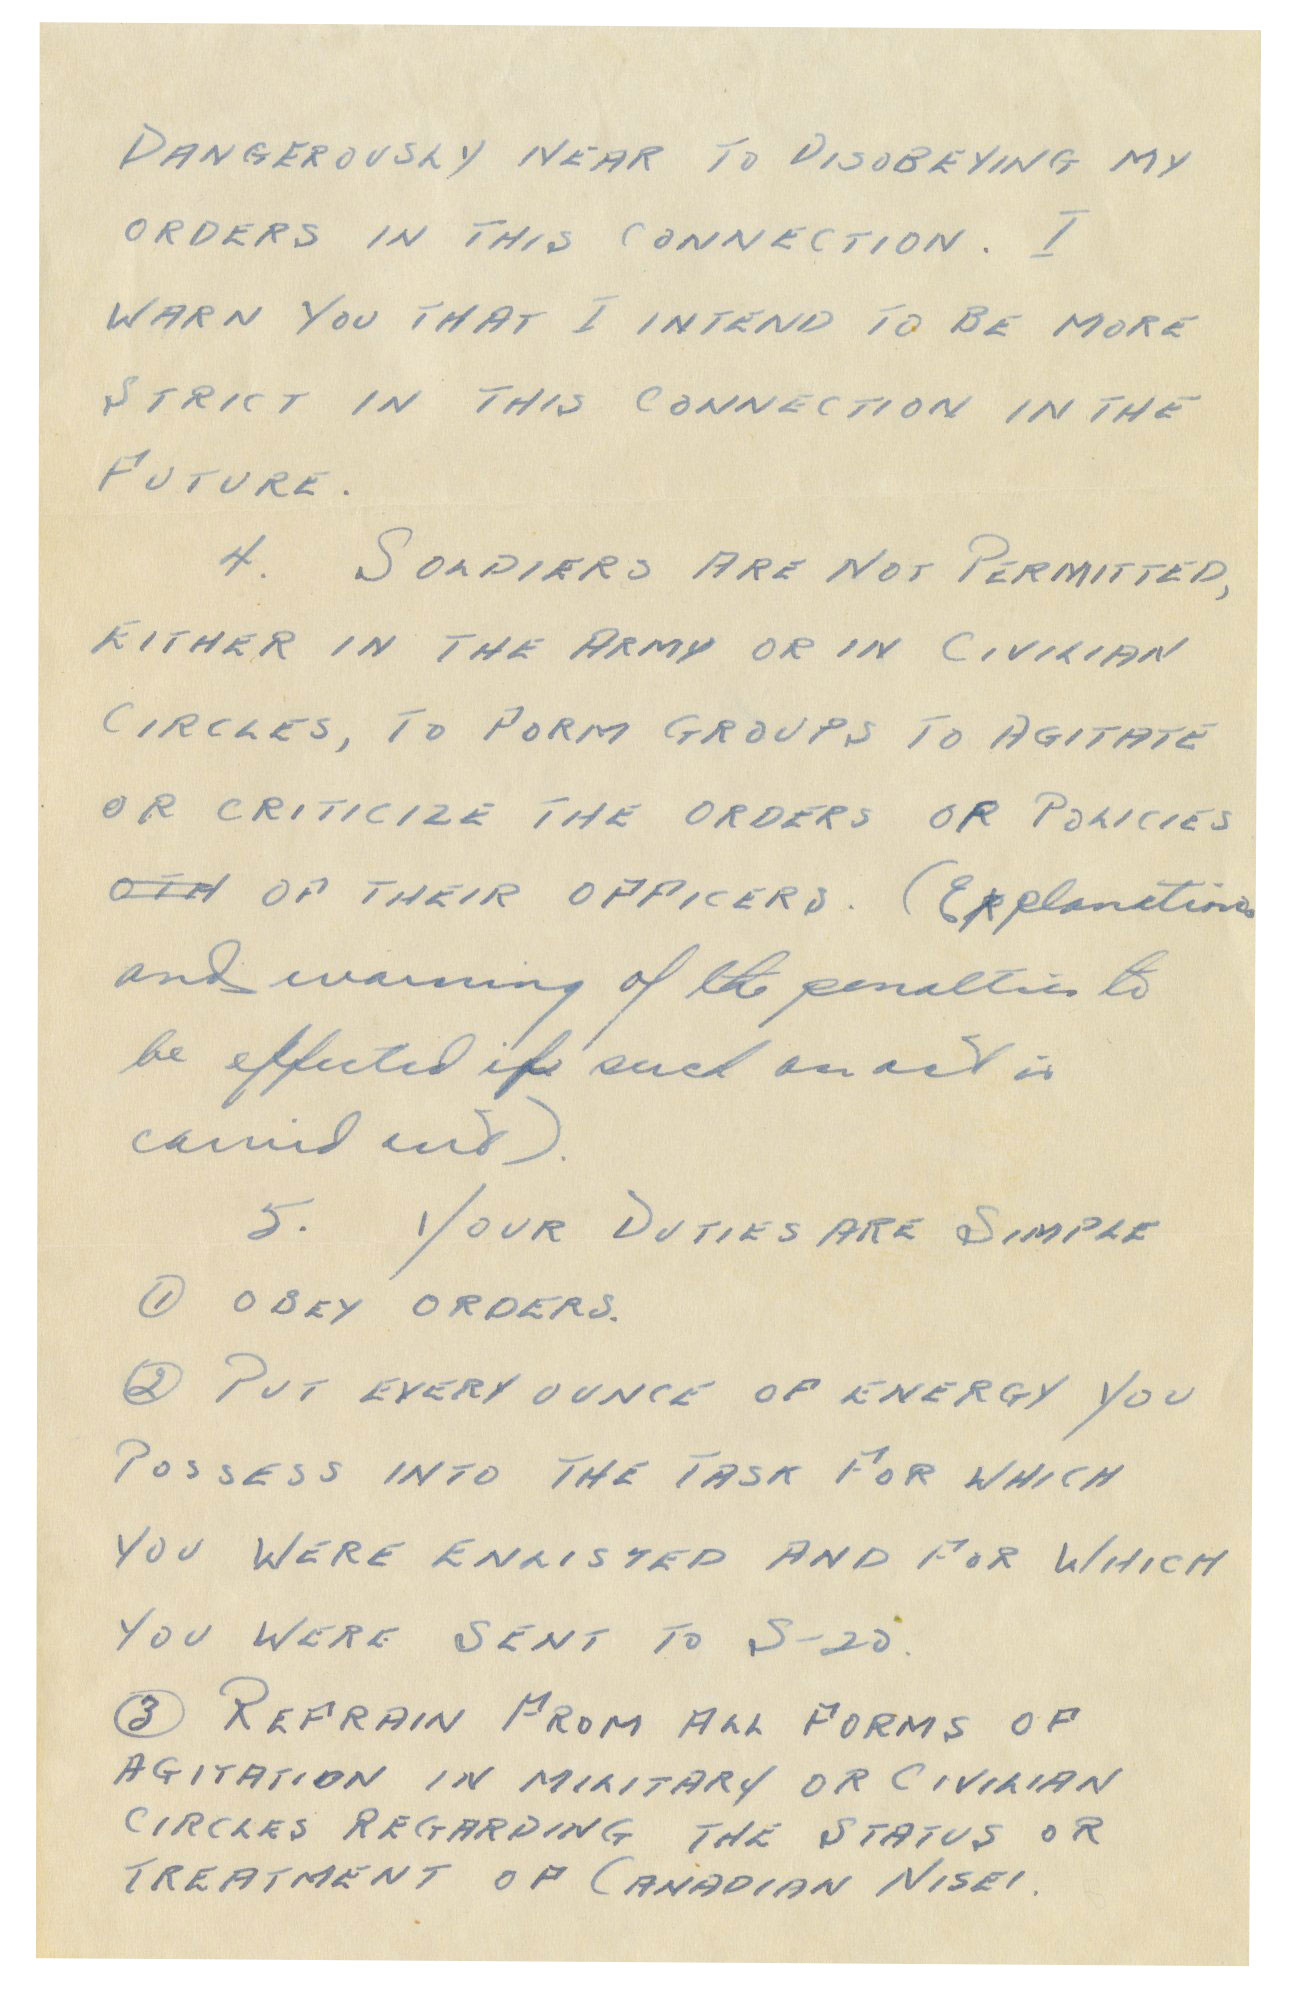 DANGEROUSLY NEAR TO DISOBEYING MY
ORDERS IN THIS CONNECTION. I
WARN YOU THAT I INTEND TO BE MORE
STRICT IN THIS CONNECTION IN THE
FUTURE.
4. SOLDIERS ARE NOT PERMITTED,
EITHER IN THE ARMY OR IN CIVILIAN
CIRCLES, TO FORM GROUPS TO AGITATE
OR CRITICIZE THE ORDERS OR POLICIES
OTH OF THEIR OFFICERS. (Explanations
and warning of the penalties to
be effected if such an act is
carried out).
5. YOUR DUTIES ARE SIMPLE
① OBEY ORDERS.
② PUT EVERY OUNCE OF ENERGY YOU
POSSESS INTO THE TASK FOR WHICH
YOU WERE ENLISTED AND FOR WHICH
YOU WERE SENT TO S-20.
③ REFRAIN FROM ALL FORMS OF
AGITATION IN MILITARY OR CIVILIAN
CIRCLES REGARDING THE STATUS OR
TREATMENT OF CANADIAN NISEI.